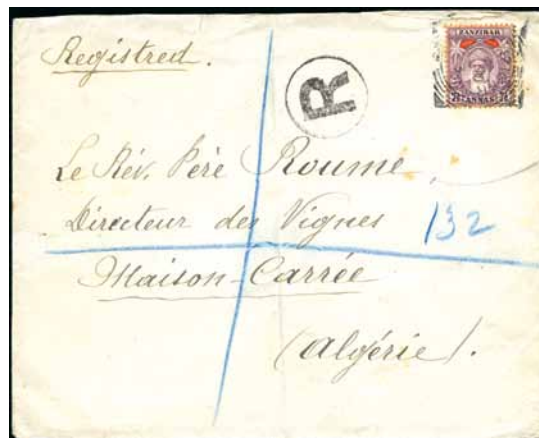 Registred.
ZANZIBAR
ANNAS
R
Le Rév. Père Roumé,
Directeur des Vignes
132
Maison-Carrée
(Algérie).